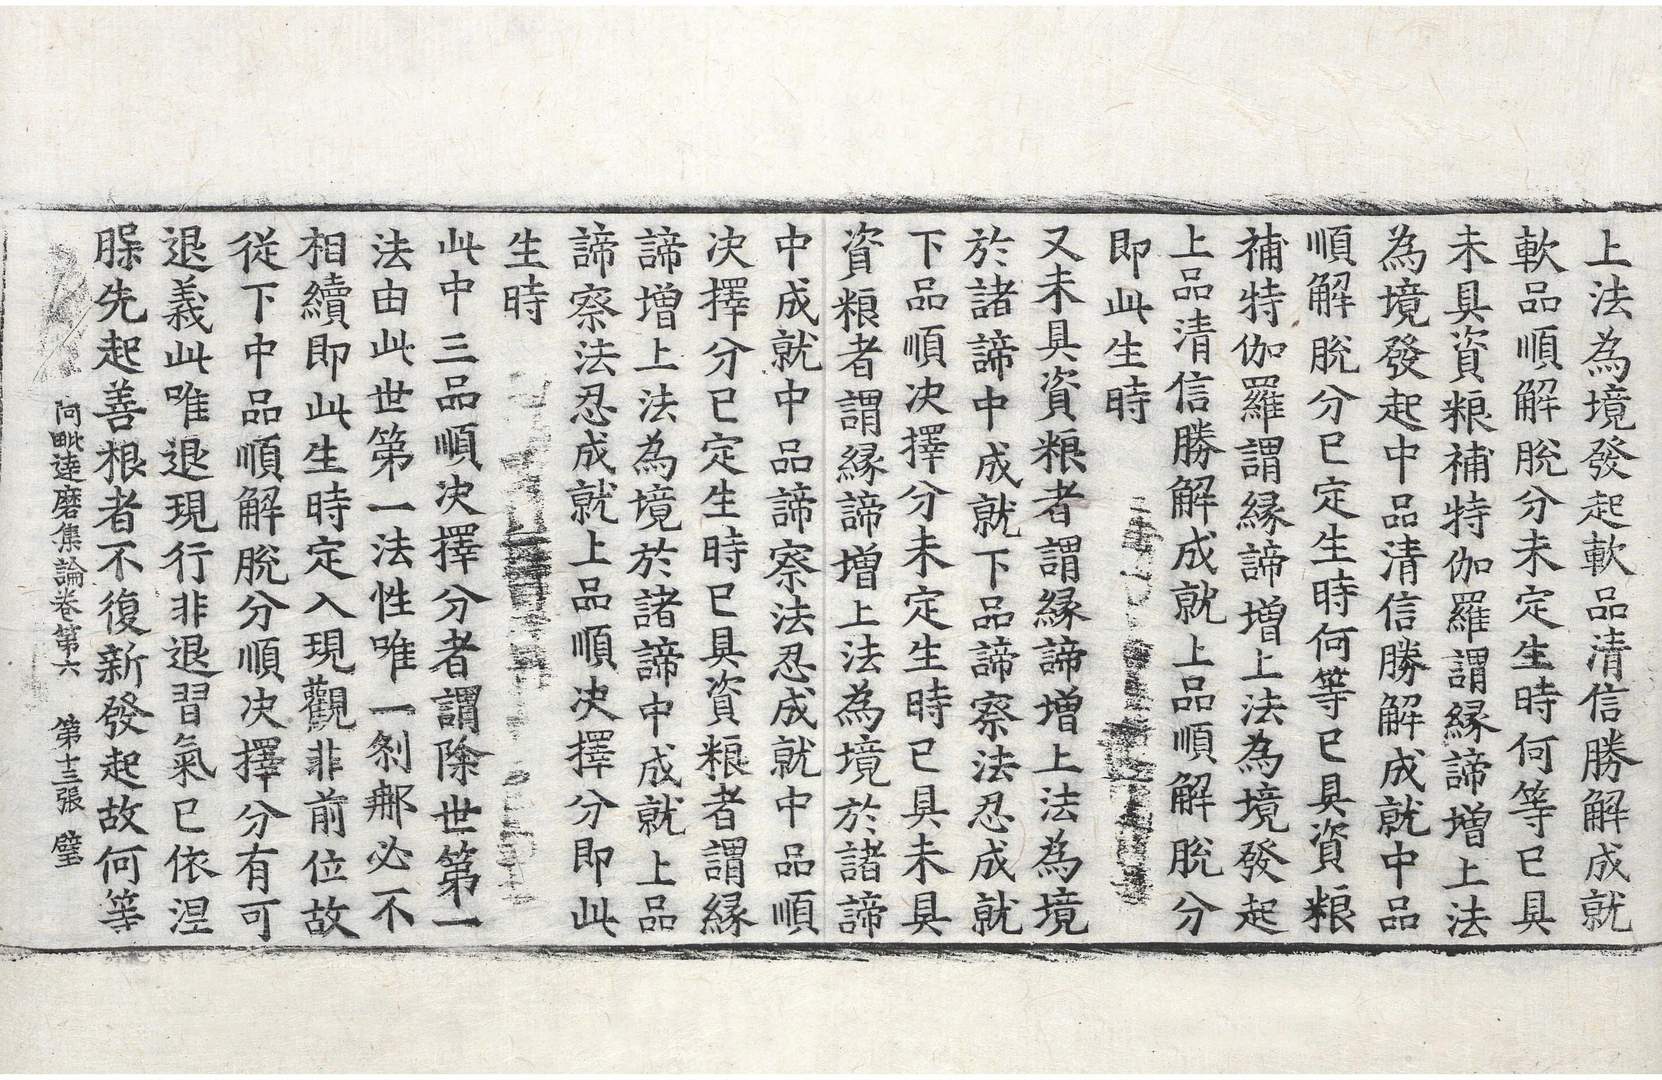 上法為境發起軟品清信勝解成就
軟品順解脫分未定生時何等已具
未具資粮補特伽羅謂緣諦增上法
為境發起中品清信勝解成就中品
順解脫分已定生時何等已具資粮
補特伽羅謂緣諦增上法為境發起
上品清信勝解成就上品順解脫分
即此生時
又未具資粮者謂緣諦增上法為境
於諸諦中成就下品諦察法忍成就
下品順决擇分未定生時已具未具
資粮者謂緣諦增上法為境於諸諦
中成就中品諦察法忍成就中品順
决擇分已定生時已具資粮者謂緣
諦增上法為境於諸諦中成就上品
諦察法忍成就上品順决擇分即此
生時
此中三品順决擇分者謂除世第一
法由此世第一法性唯一剎那必不
相續即此生時定入現觀非前位故
從下中品順解脫分順决擇分有可
退義此唯退現行非退習氣已依涅
槃先起善根者不復新發起故何等
阿毗達磨集論卷第六 第十三張 璧